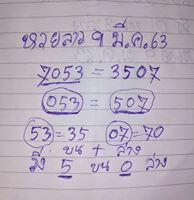 หวยลาว 9 มี.ค.63
7053 = 3507
053 = 507
53 = 35 07 = 70
บน + ล่าง
วิ่ง 5 บน 0 ล่าง